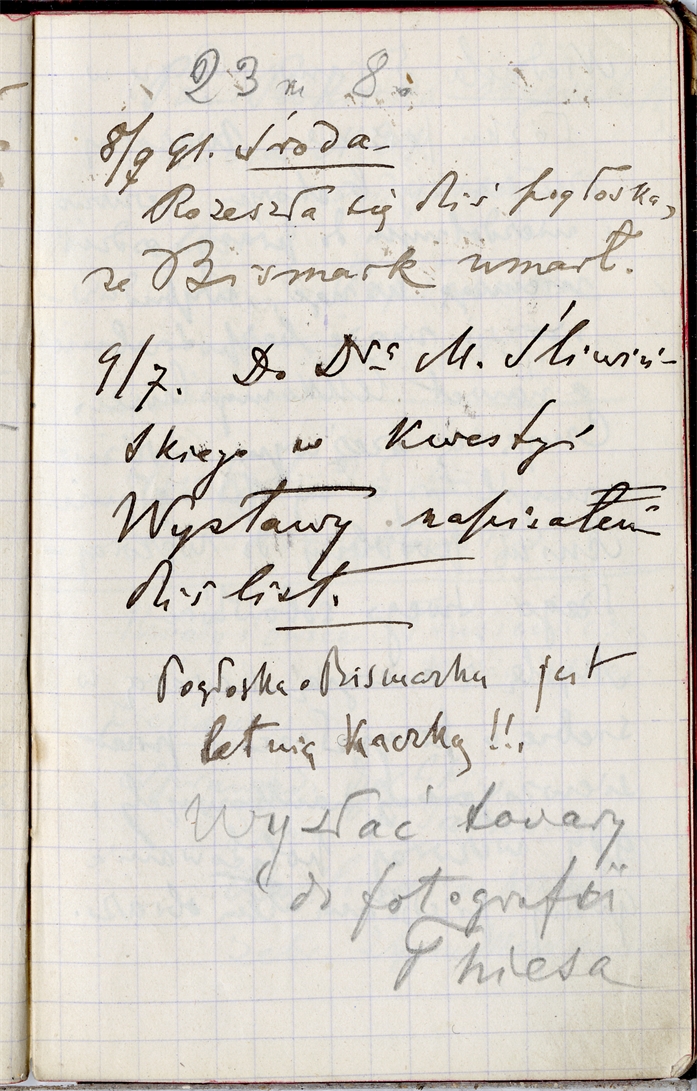 23 m 8.
8/7 91. Środa
Rozeszła się dziś pogłoska,
że Bismark umarł.
9/7. Do Dra M. Śliwiń-
skiego w kwestyi
Wystawy napisałem
dziś list.
Pogłoska o Bismarku jest
letnią kaczką!!.
Wysłać towary
do fotografii
Thiesa